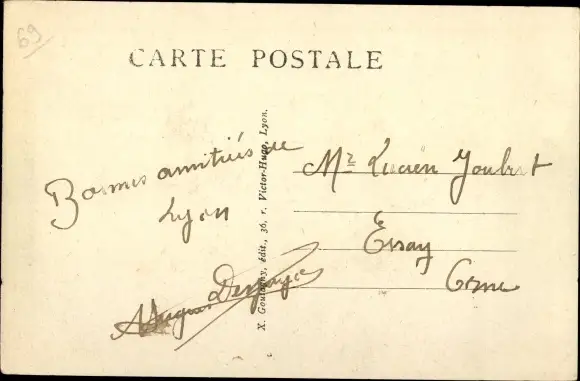 69
CARTE POSTALE
Bonnes amitiés de
Lyon
X. Goutagny, édit., 36, r. Victor-Hugo, Lyon.
Mr Lucien Joubert
Essay
Orne